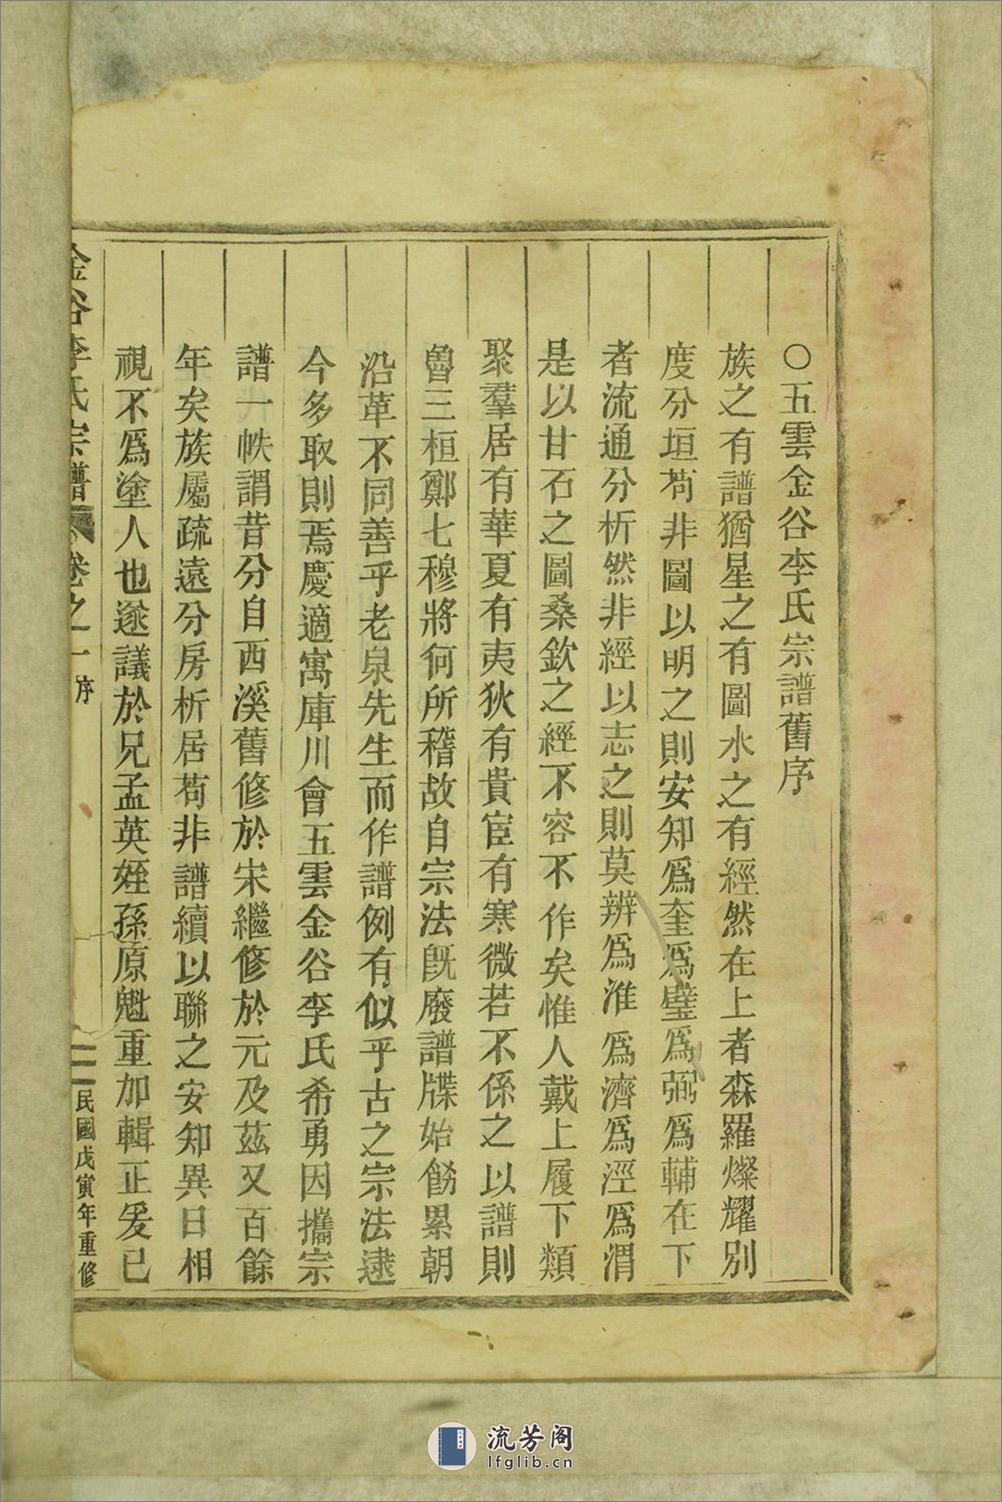 ○五雲金谷李氏宗譜舊序
族之有譜猶星之有圖水之有經然在上者森羅燦耀別
度分垣苟非圖以明之則安知爲奎爲璧爲弼爲輔在下
者流通分析然非經以志之則莫辨爲淮爲濟爲涇爲渭
是以甘石之圖桑欽之經不容不作矣惟人戴上履下類
聚羣居有華夏有夷狄有貴宦有寒微若不係之以譜則
魯三桓鄭七穆將何所稽故自宗法旣廢譜牒始餝累朝
沿革不同善乎老泉先生而作譜例有似乎古之宗法逮
今多取則焉慶適寓庫川會五雲金谷李氏希勇因攜宗
譜一帙謂昔分自西溪舊修於宋繼修於元及茲又百餘
年矣族屬疏遠分房析居苟非譜續以聯之安知異日相
視不爲塗人也遂議於兄孟英姪孫原魁重加輯正爰已
金谷李氏宗譜 卷之一 序 二 民國戊寅年重修
流芳阁
lfglib.cn